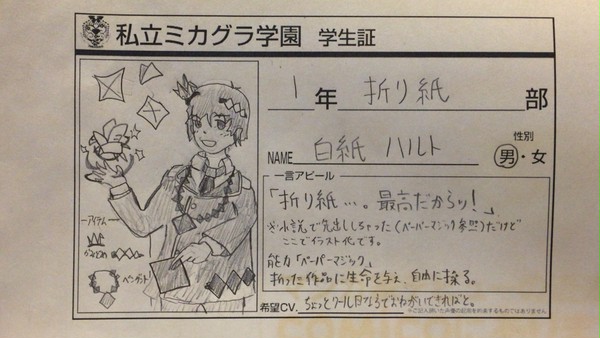 私立ミカグラ学園 学生証
1年 折り紙 部
性別
NAME 白紙 ハルト 男・女
一言アピール
「折り紙…。最高だからッ!」
※小説で先出ししちゃった(ペーパーマジック参照)だけど
ここでイラスト化です。
能力「ペーパーマジック」
折った作品に生命を与え、自由に操る。
アイテム
かみどめ
ペンダント
希望CV. ちょっとクール目な
※ご記入頂いた声優の起用を約束するものではありません